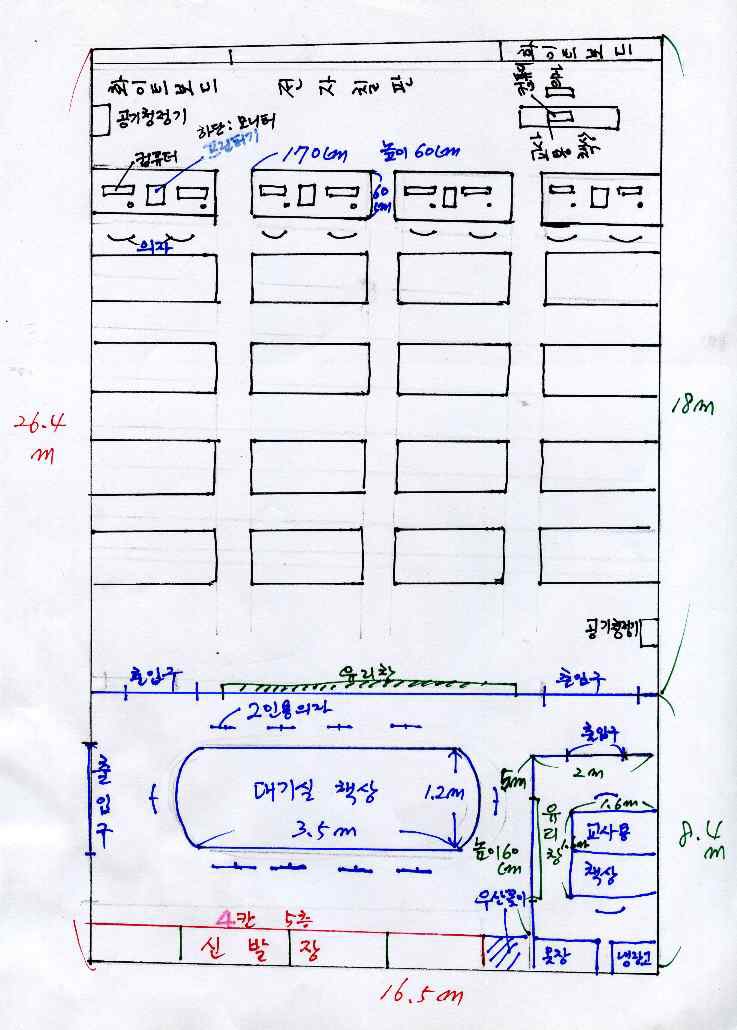 화이트보드
화이트보드 전자칠판
컴퓨터
교사용 책상
공기청정기
하단: 모니터
프린터기
컴퓨터
170cm 높이 60cm
60cm
의자
26.4
m
18m
공기청정기
출입구 유리창 출입구
2인용의자
출입구
출입구
5m
2m
대기실 책상
1.2m
3.5m
유리창
1.6m
교사용
책상
높이60
cm
8.4
m
우산꽂이
4칸 5층
신발장
옷장
냉장고
16.5m